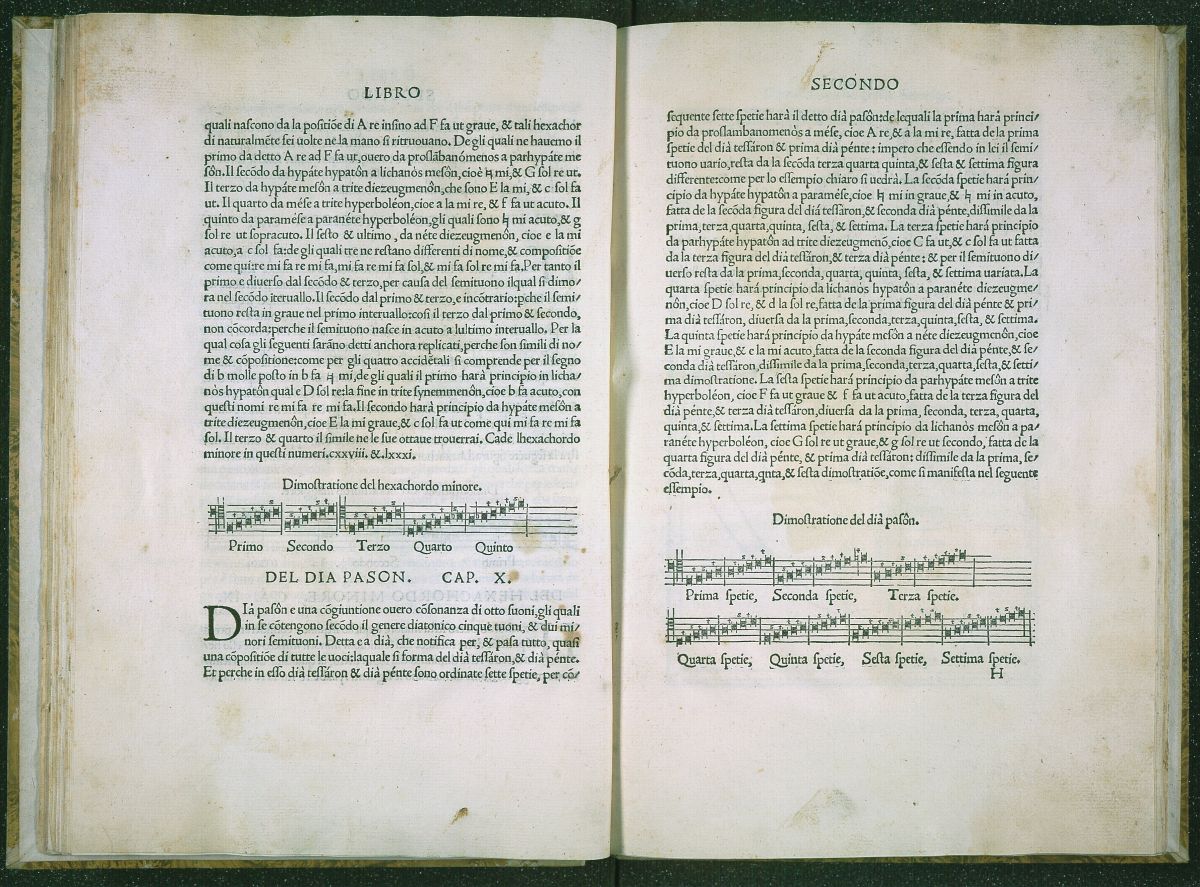 LIBRO
quali nascono da la positiõe di A re insino ad F fa ut graue, & tali hexachor
di naturalmẽte sei uolte ne la mano si ritruouano. De gli quali ne hauemo il
primo da detto A re ad F fa ut, ouero da proslãbanómenos a parhypáte me
sôn. Il secõdo da hypáte hypatôn a lichanòs mesôn, cioè ♮ mi, & G sol re ut.
Il terzo da hypáte mesôn a trite diezeugmenôn, che sono E la mi, & c sol fa
ut. Il quarto da mése a trite hyperboléon, cioe a la mi re, & f fa ut acuto. Il
quinto da paramése a paranéte hyperboléon, gli quali sono ♮ mi acuto, & g
sol re ut sopracuto. Il sesto & ultimo, da néte diezeugmenôn, cioe e la mi
acuto, a c sol fa: de gli quali tre ne restano differenti di nome, & compositiõe
come qui: re mi fa re mi fa, mi fa re mi fa sol, & mi fa sol re mi fa. Per tanto il
primo e diuerso dal secõdo & terzo, per causa del semituono ilqual si dimo/
ra nel secõdo iteruallo. Il secõdo dal primo & terzo, e incõtrario: pche il semi/
tuono resta in graue nel primo interuallo: cosi il terzo dal primo & secondo,
non cõcorda: perche il semituono nasce in acuto a lultimo interuallo. Per la
qual cosa gli seguenti sarãno detti anchora replicati, perche son simili di no/
me & cõpositione: come per gli quatro accidẽtali si comprende per il segno
di b molle posto in b fa ♮ mi, de gli quali il primo harà principio in licha/
nòs hypatôn qual e D sol re: la fine in trite synemmenôn, cioe b fa acuto, con
questi nomi re mi fa re mi fa. Il secondo harà principio da hypáte mesôn a
trite diezeugmenôn, cioe E la mi graue, & c sol fa ut come qui mi fa re mi fa
sol. Il terzo & quarto il simile ne le sue ottaue trouerrai. Cade lhexachordo
minore in questi numeri. cxxviii. & .lxxxi.
Dimostratione del hexachordo minore.
Primo Secondo Terzo Quarto Quinto
DEL DIA PASON. CAP. X.
DIà pasôn e una cõgiuntione ouero cõsonanza di otto suoni, gli quali
in se cõtengono secõdo il genere diatonico cinque tuoni, & dui mi/
nori semituoni. Detta e a dià, che notifica per, & pasa tutto, quasi
una cõpositiõe di tutte le uoci: laquale si forma del dià tessáron, & dià pénte.
Et perche in esso dià tessáron & dià pénte sono ordinate sette spetie, per cõ/
SECONDO
sequente sette spetie harà il detto dià pasôn: de lequali la prima hará princi/
pio da proslambanomenòs a mése, cioe A re, & a la mi re, fatta de la prima
spetie del dià tessáron & prima dià pénte: impero che essendo in lei il semi/
tuono uario, resta da la secõda terza quarta quinta, & sesta & settima figura
differente: come per lo essempio chiaro si uedrà. La secõda spetie hará prin/
cipio da hypáte hypatôn a paramése, cioe ♮ mi in graue, & ♮ mi in acuto,
fatta de la secõda figura del diá tessáron, & seconda dià pénte, dissimile da la
prima, terza, quarta, quinta, sesta, & settima. La terza spetie hará principio
da parhypáte hypatôn ad trite diezeugmenõ, cioe C fa ut, & c sol fa ut fatta
da la terza figura del dià tessáron, & terza dià pénte: & per il semituono di/
uerso resta da la prima, seconda, quarta, quinta, sesta, & settima uariata. La
quarta spetie hará principio da lichanòs hypatôn a paranéte diezeugme/
nôn, cioe D sol re, & d la sol re, fatta de la prima figura del dià pénte & pri/
ma dià tessáron, diuersa da la prima, seconda, terza, quinta, sesta, & settima.
La quinta spetie hará principio da hypáte mesôn a néte diezeugmenôn, cioe
E la mi graue, & e la mi acuto, fatta de la seconda figura del dià pénte, & se/
conda dià tessáron, dissimile da la prima, seconda, terza, quarta, sesta, & setti/
ma dimostratione. La sesta spetie hará principio da parhypáte mesôn a trite
hyperboléon, cioe F fa ut graue & f fa ut acuto, fatta de la terza figura del
dià pénte, & terza dià tessáron, diuersa da la prima, seconda, terza, quarta,
quinta, & settima. La settima spetie hará principio da lichanòs mesôn a pa/
ranéte hyperboléon, cioe G sol re ut graue, & g sol re ut secondo, fatta de la
quarta figura del dià pénte, & prima dià tessáron: dissimile da la prima, se/
cõda, terza, quarta, qnta, & sesta dimostratiõe, come si manifesta nel seguente
essempio.
Dimostratione del dià pasôn.
Prima spetie, Seconda spetie, Terza spetie.
Quarta spetie, Quinta spetie, Sesta spetie, Settima spetie.
H